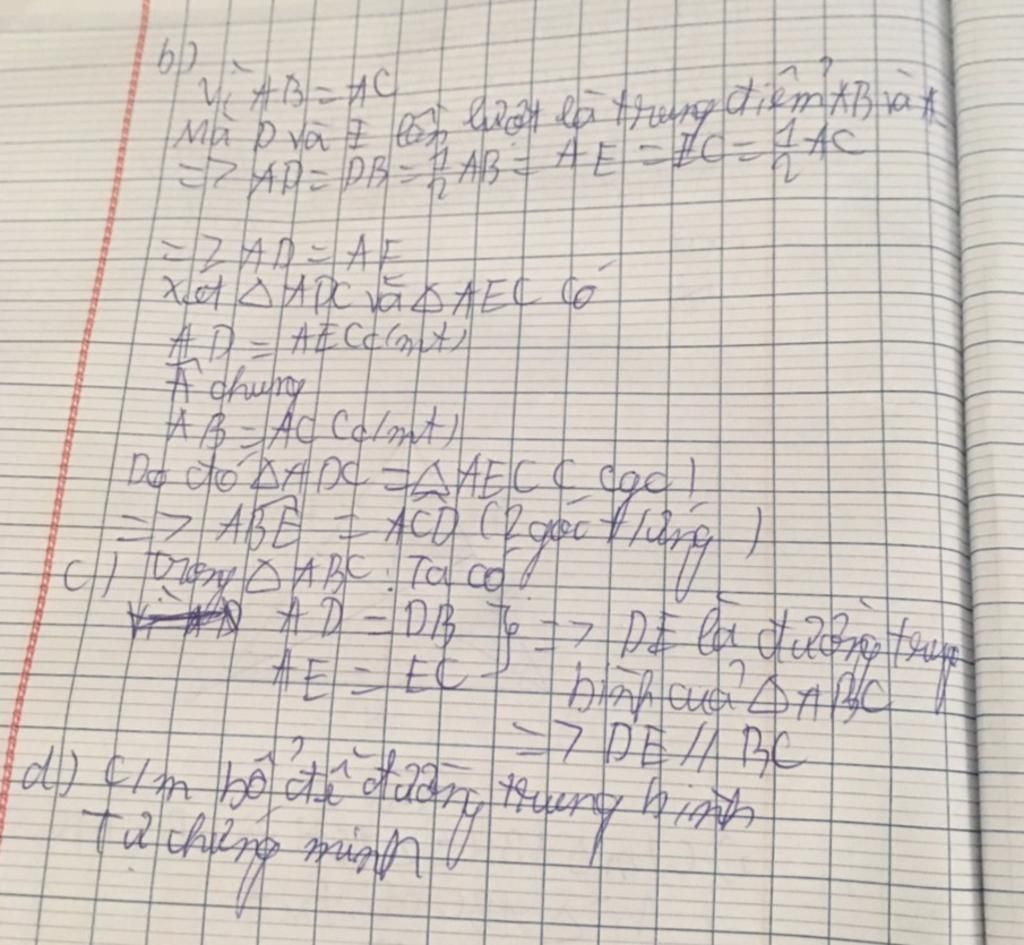 b)
Vì AB = AC
Mà D và E lần lượt là trung điểm AB và A
=> AD = DB = 1/2 AB = AE = EC = 1/2 AC
=> AD = AE
Xét △ ADC và △ AEC có
AD = AE C c/mt)
Â chung
AB = AC C c/mt)
Do đó △ ADC = △ AEC C cgc)
=> ABE = ACD (2 góc t/ứng)
c) Trong △ ABC: Ta có
AD = DB } => DE là đường trung
AE = EC bình của △ ABC
=> DE // BC
d) c/m bổ đề đường trung bình
Tự chứng minh